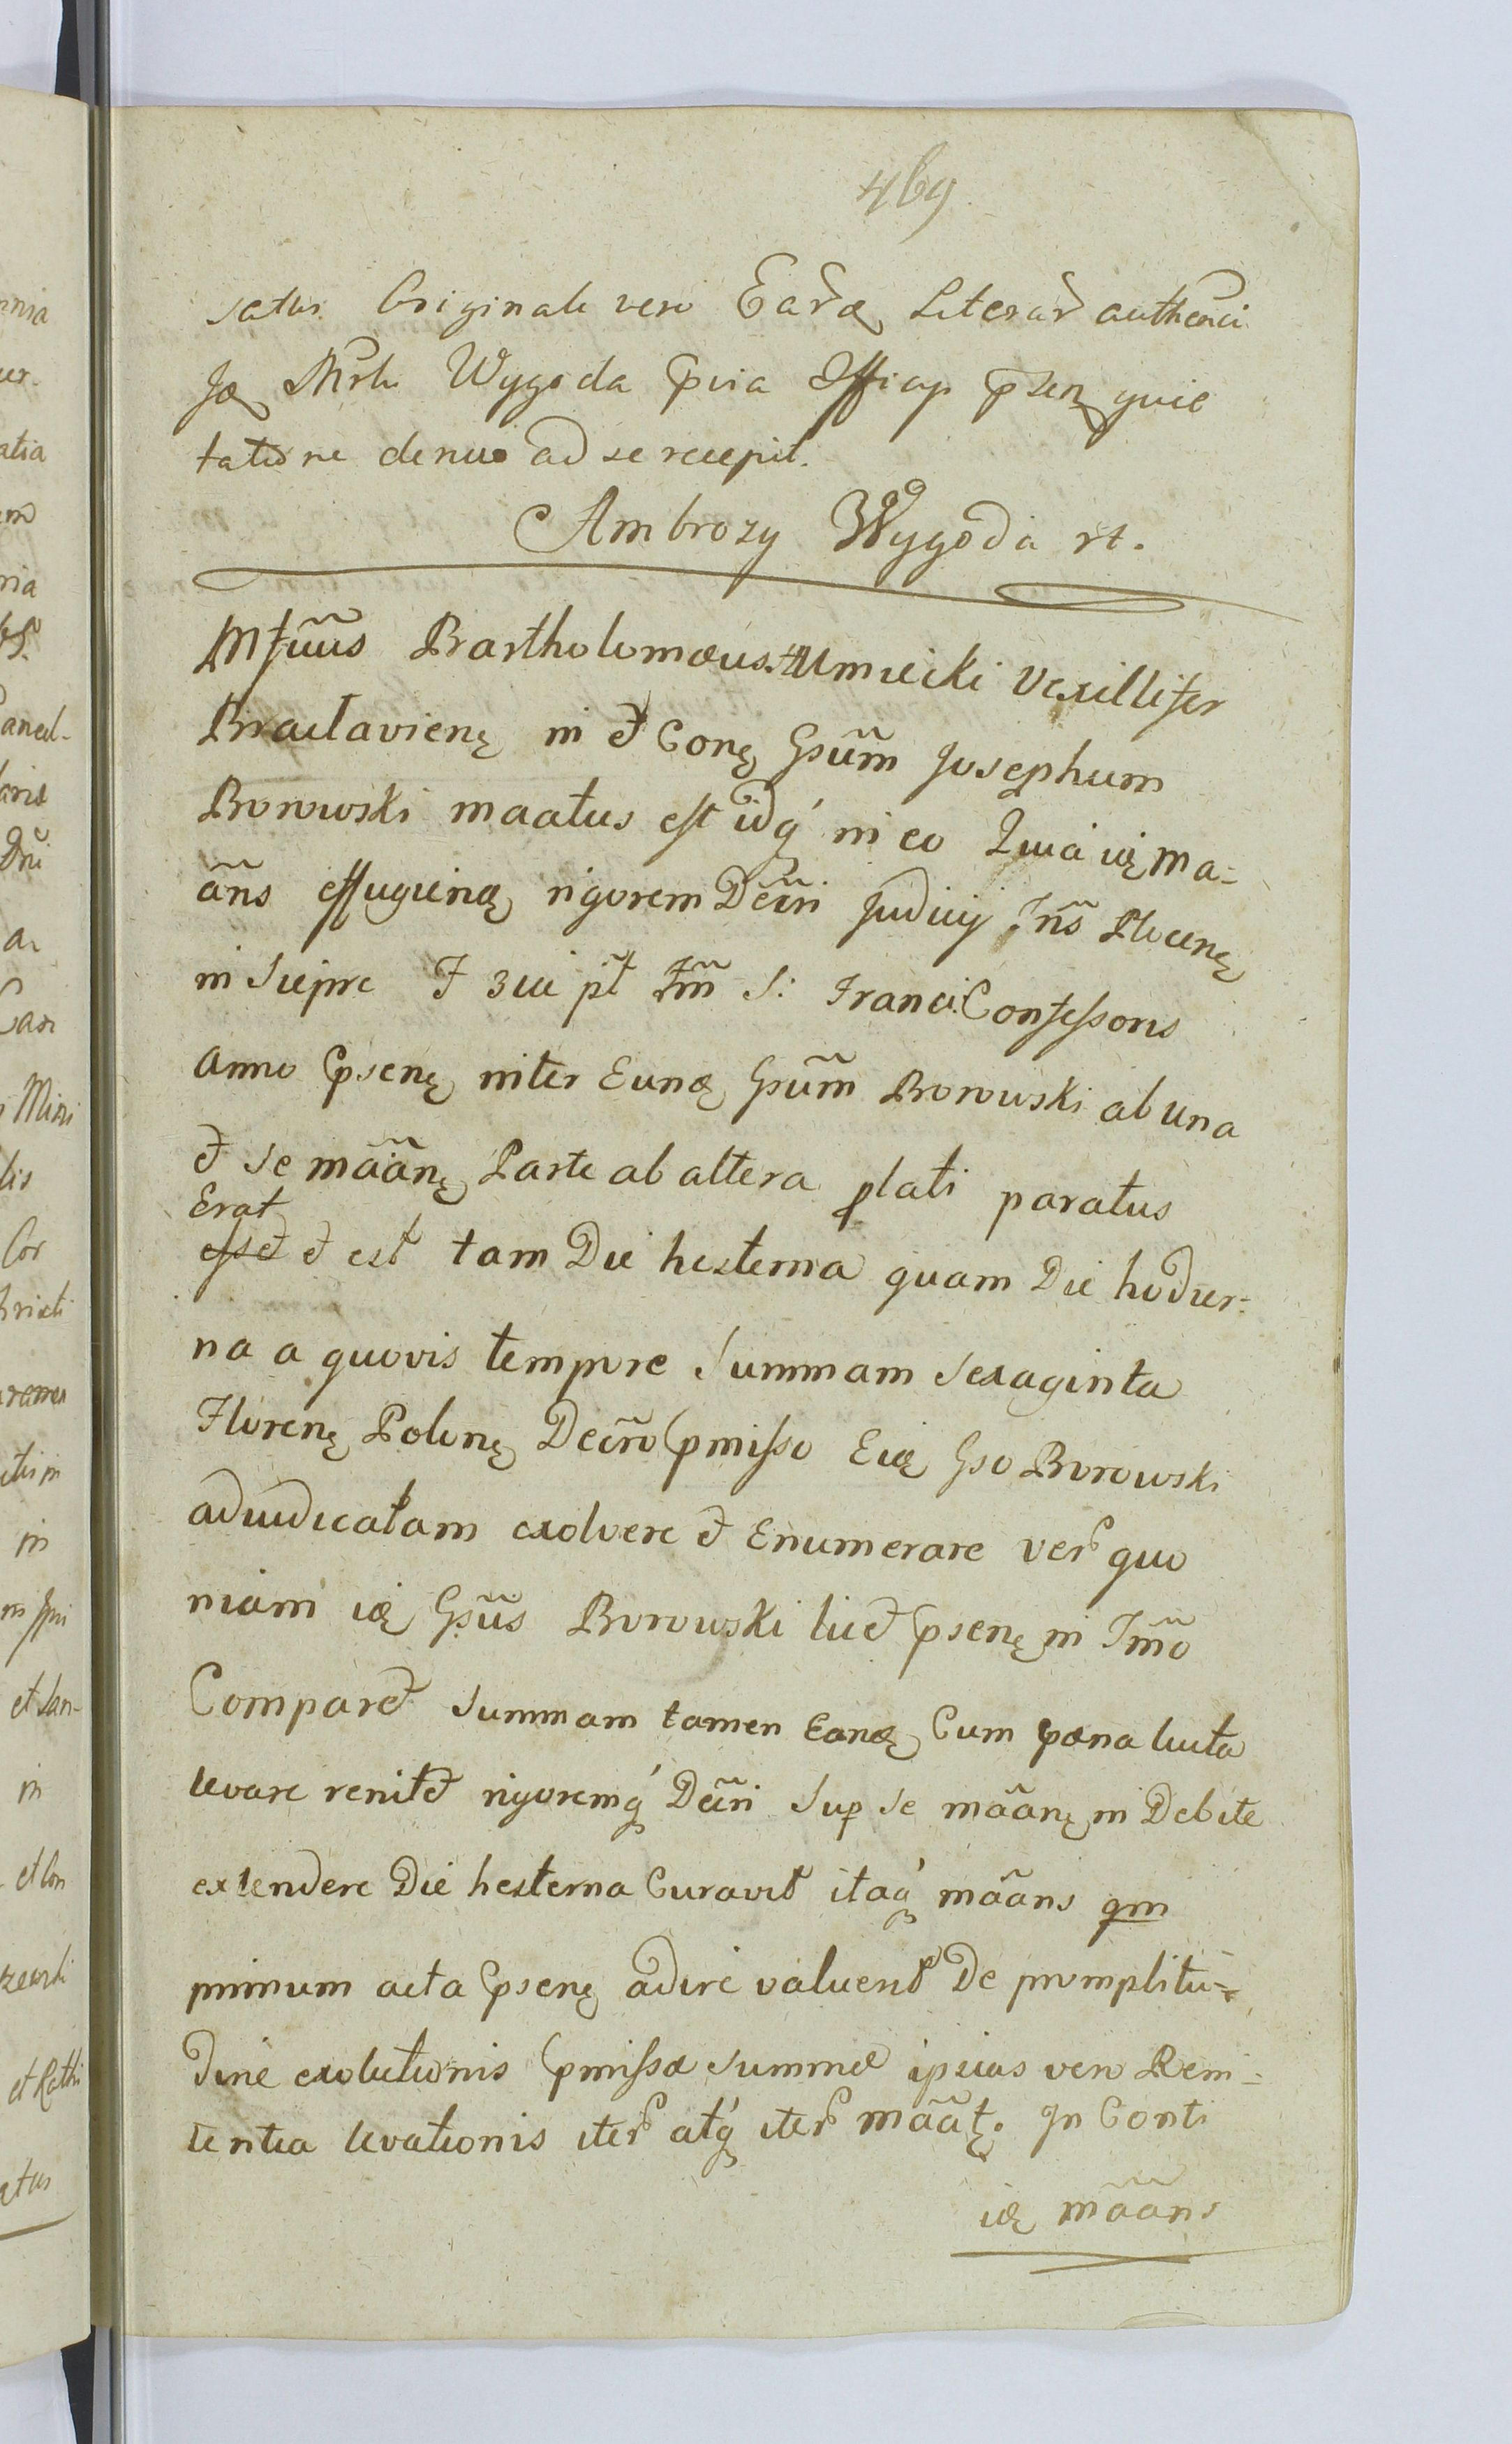 469
satur. Originale vero Earꝺ Literar authenci
Jꝺ Mrlis Wygoda pvia Officij psenʒ quie
tatione denuo ad se recepit.
Ambrozy Wygoda rt.
Mfũus Bartholomæus Umiecki Vexillifer
Braclavienʒ in &amp; Conʒ Gsũm Josephum
Borowski maatus est idq́ in eo Quia iꝺ ma=
ãns effugienꝺ rigorem Decrĩ Judicij Tris Plocenʒ
in Sierpre F 3tii pt̃ Fm̃ S: Franci: Confessoris
Anno psenʒ inter Eunꝺ Gsũm Borowski ab una
&amp; se mãanʒ Parte ab altera plati paratus
Erat
esset &amp; est tam Die hesterna quam Die hodier=
na a quovis tempore Summam Sexaginta
Florenʒ Polonʒ Decrõ pmisso Eiꝺ Gso Borowski
adiudicatam exolvere &amp; Enumerare ver quo
niam iꝺ Gsũs Borowski licet psenʒ in Tm̃o
Comparet Summam tamen Eanꝺ Cum pœna luita
levare renitet rigoremq́ Decrĩ Sup se mãanʒ in Debite
extendere Die hesterna Curavit itaq́ mãans qm
primum acta psenʒ adire valuerit De promptitu=
dine exolutionis pmissæ Summæ ipsius vero Reni=
tentia levationis iter atq́ iter mãatʒ. In Conti
iꝺ mãans